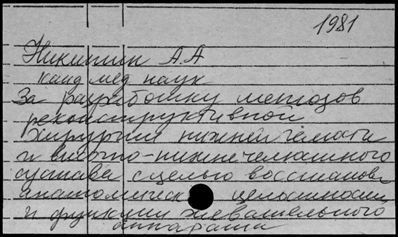 1981
Никитин А.А
канд мед наук
За разработку методов
реконструктивной
хирургии нижней челюсти
и височно-нижнечелюстного
сустава с целью восстанов
анатомическ целостности
и функции жевательного
аппарата